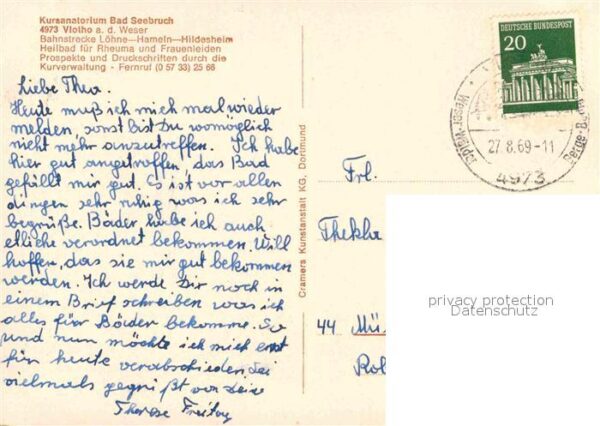 Kursanatorium Bad Seebruch
4973 Vlotho a. d. Weser
Bahnstrecke Löhne—Hameln—Hildesheim
Heilbad für Rheuma und Frauenleiden
Prospekte und Druckschriften durch die
Kurverwaltung - Fernruf (0 57 33) 25 66
Liebe Thea.
Heute muß ich mich mal wieder
melden, sonst bist Du womöglich
nicht mehr anzutreffen. Ich habe
hier gut angetroffen, das Bad
gefällt mir gut. Es ist vor allen
dingen sehr ruhig was ich sehr
begrüße. Bäder habe ich auch
etliche verordnet bekommen. Will
hoffen, das sie mir gut bekommen
werden. Ich werde Dir noch in
einem Brief schreiben was ich
alles für Bäder bekomme. So
und nun möchte ich mich erst
für heute verabschieden. Sei
vielmals gegrüßt von Deine
Therese Freitag
Cramers Kunstanstalt KG, Dortmund
DEUTSCHE BUNDESPOST
20
27.8.69-11
4973
Frl.
Thekla
44 Mü
Rol
privacy protection
Datenschutz